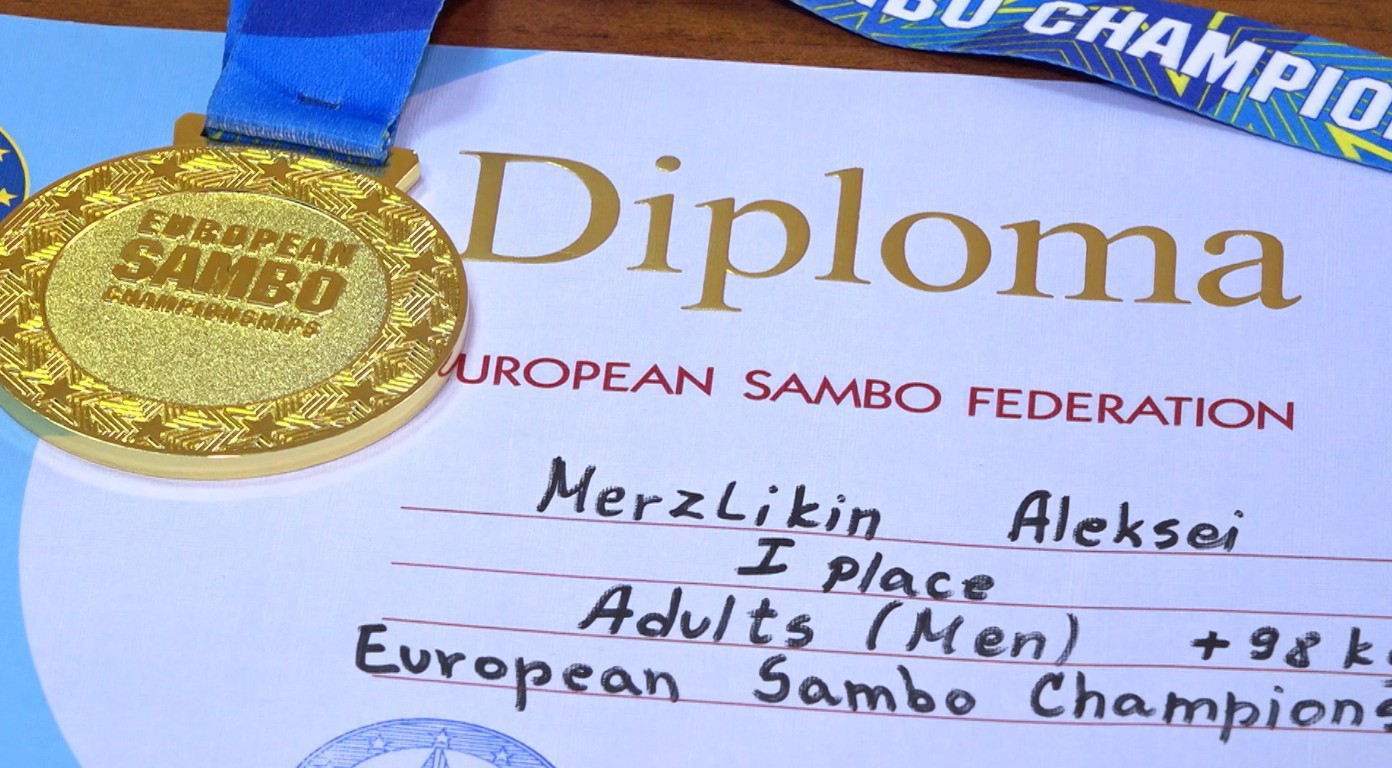 CHAMPIO
EUROPEAN
SAMBO
CHAMPIONSHIPS
Diploma
EUROPEAN SAMBO FEDERATION
MerzLikin Aleksei
I place
Adults (Men) +98 k
European Sambo Champions